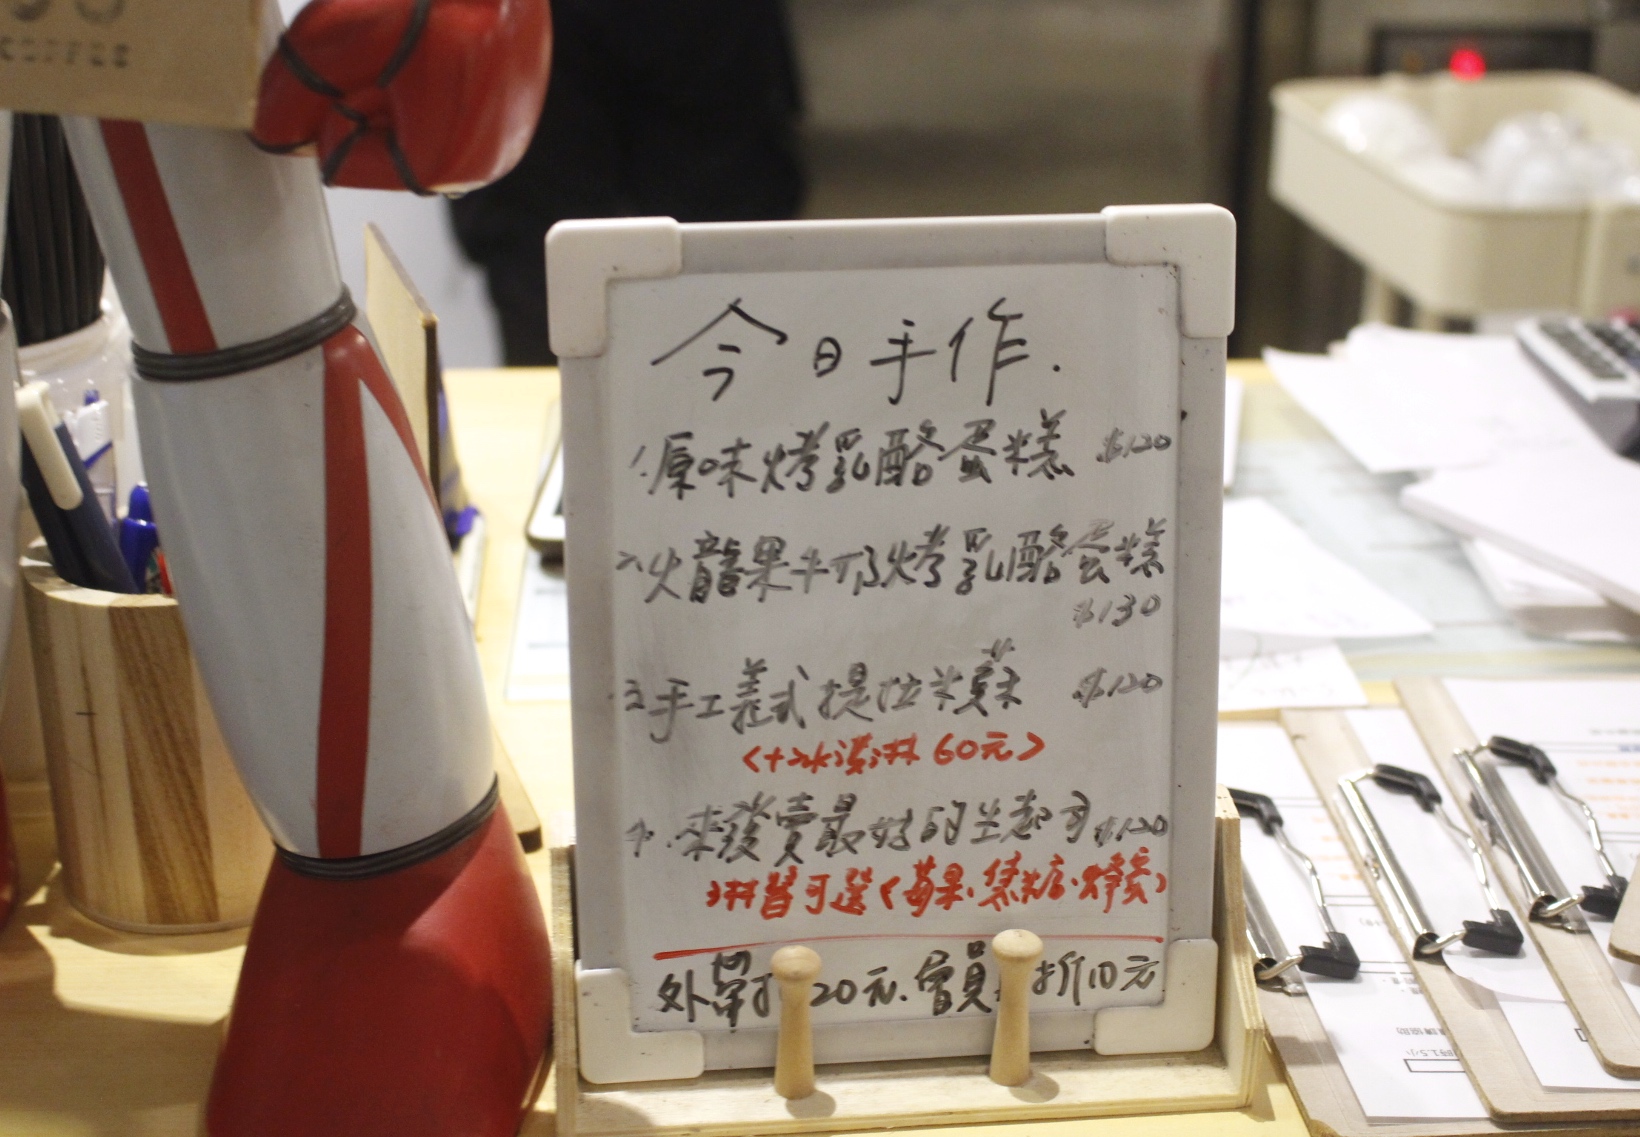 COFFEE
今日手作.
1.原味烤乳酪蛋糕 $120
2.火龍果牛奶烤乳酪蛋糕
$130
3.手工義式提拉米蘇 $120
(+冰淇淋60元)
4.來發賣最好的生起司 $120
淋醬可選(莓果.焦糖.蜂蜜)
外帶折20元.會員 折10元